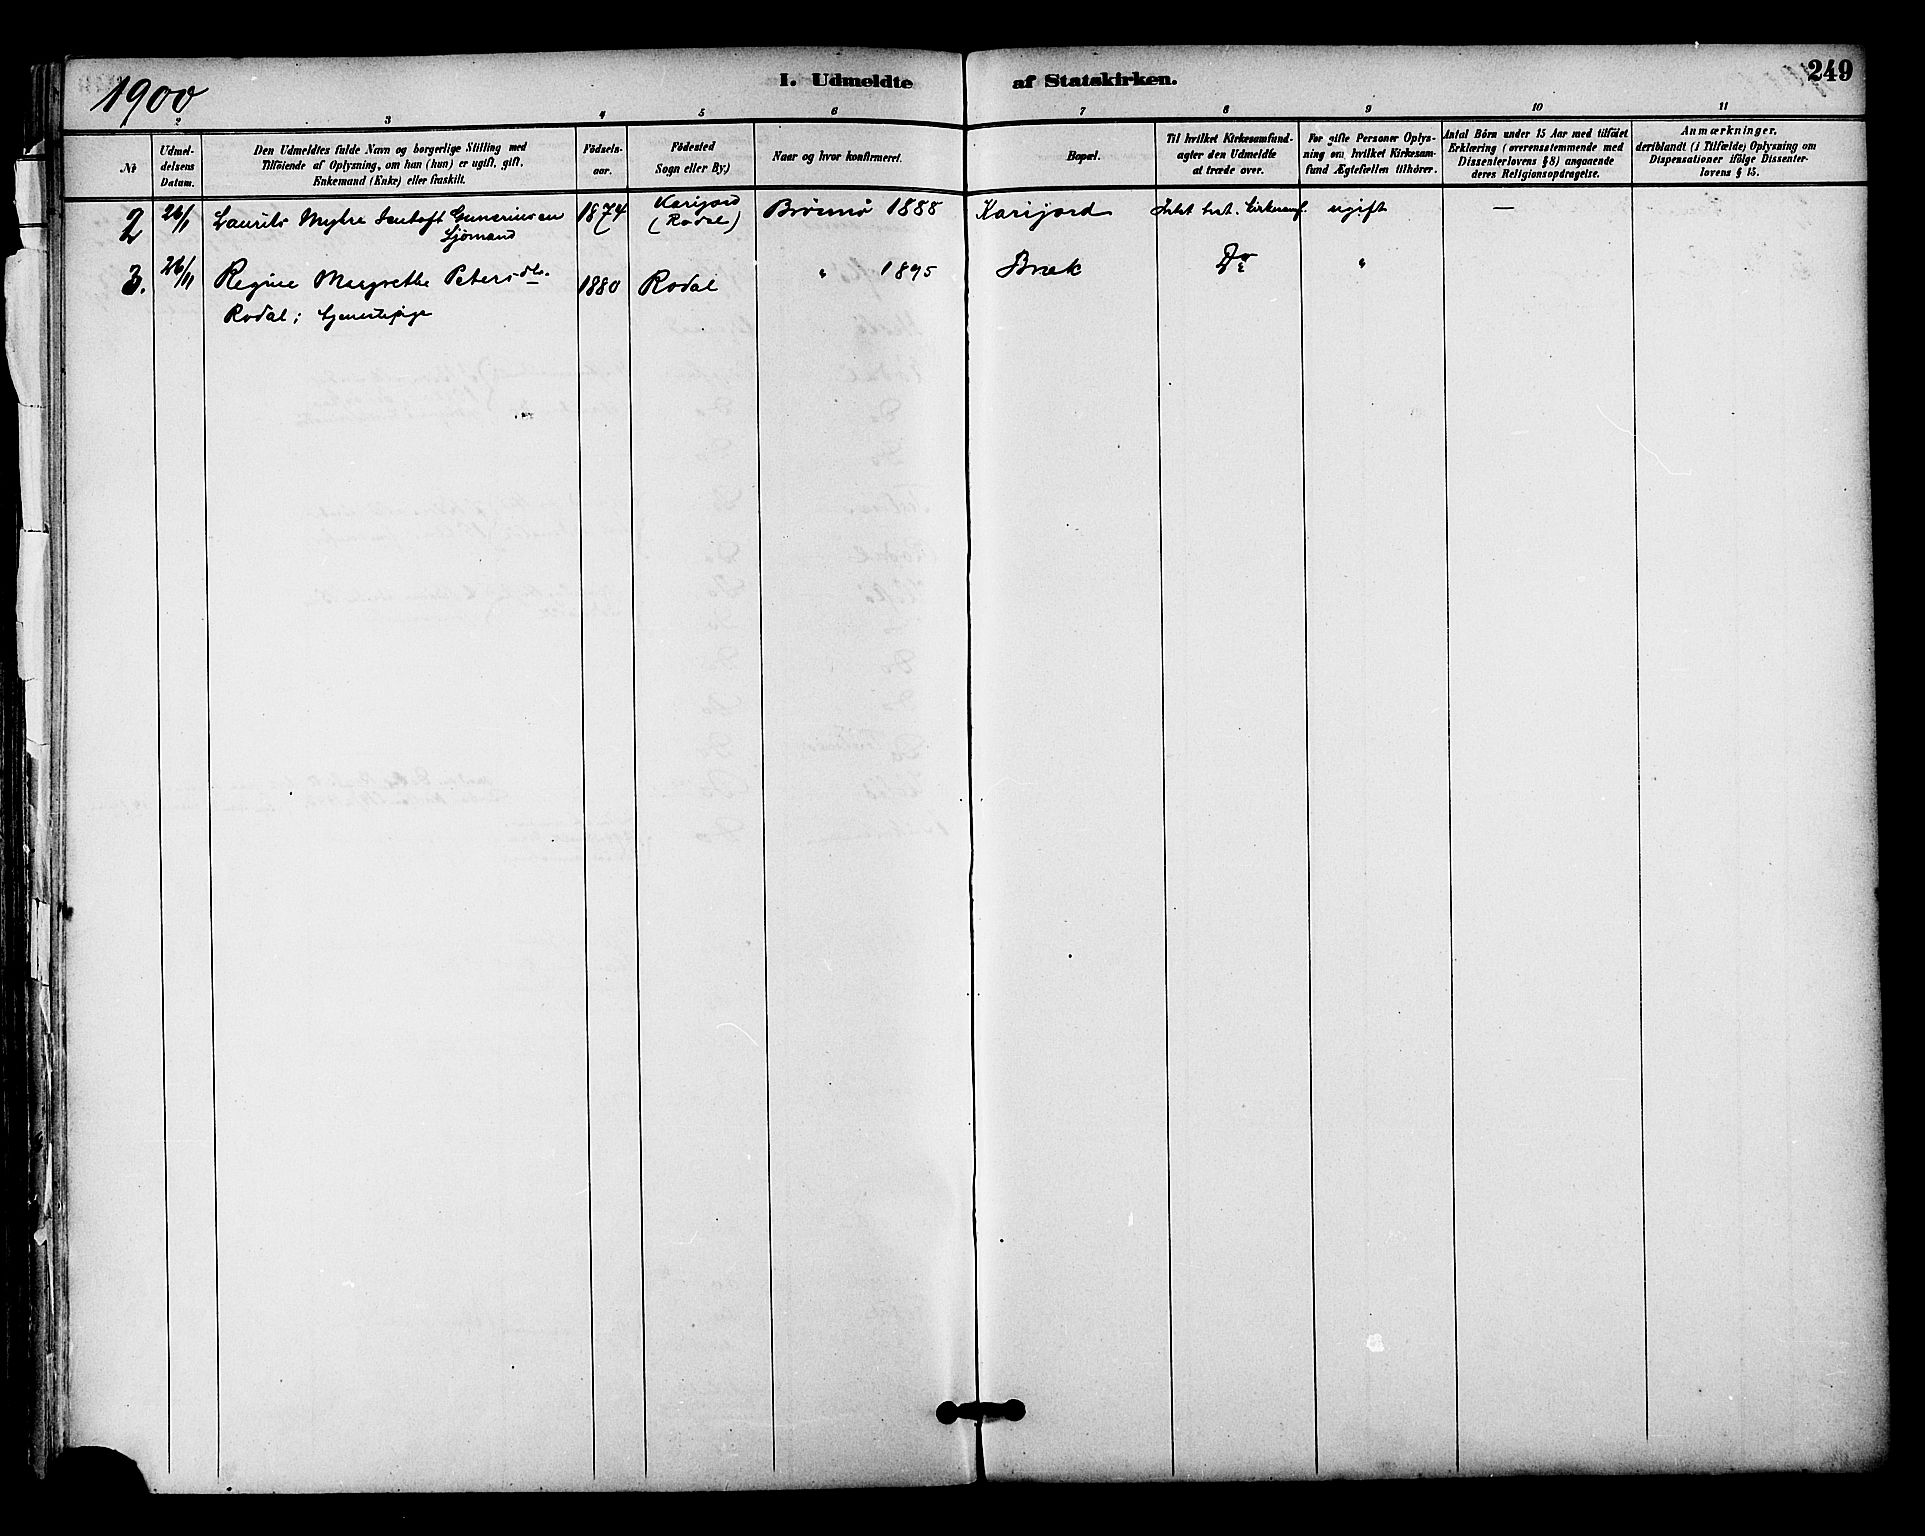 1900
I. Udmeldte af Statskirken.
249
2 3 4 5 6 7 8 9 10 11
Nr
Udmel-
delsens
Datum.
Den Udmeldtes fulde Navn og borgerlige Stilling med
Tilföiende af Oplysning, om han (hun) er ugift, gift,
Enkemand (Enke) eller fraskilt.
Födsels-
aar.
Födested
Sogn eller By.)
Naar og hvor konfirmeret.
Bopæl.
Til hvilket Kirkesamfund-
agter den Udmeldte
at træde over.
For gifte Personer Oplys-
ning om, hvilket Kirkesam-
fund Ægtefællen tilhörer.
Antal Börn under 15 Aar med tilföiet
Erklæring (overensstemmende med
Dissenterlovens § 8) angaaende
deres Religionsopdragelse.
Anmærkninger,
deriblandt (i Tilfælde) Oplysning om
Dispensationer ifölge Dissenter-
lovens § 15.
2 26/1 Laurits Myhre Guneriussen 1874 Karijord Brönnö 1888 Karijord ugift —
Sjömand (Rodal)
3. 26/11 Regine Margrethe Petersdtr. 1880 Rodal " 1895 Bræk Do "
Rodal; tjenestepige